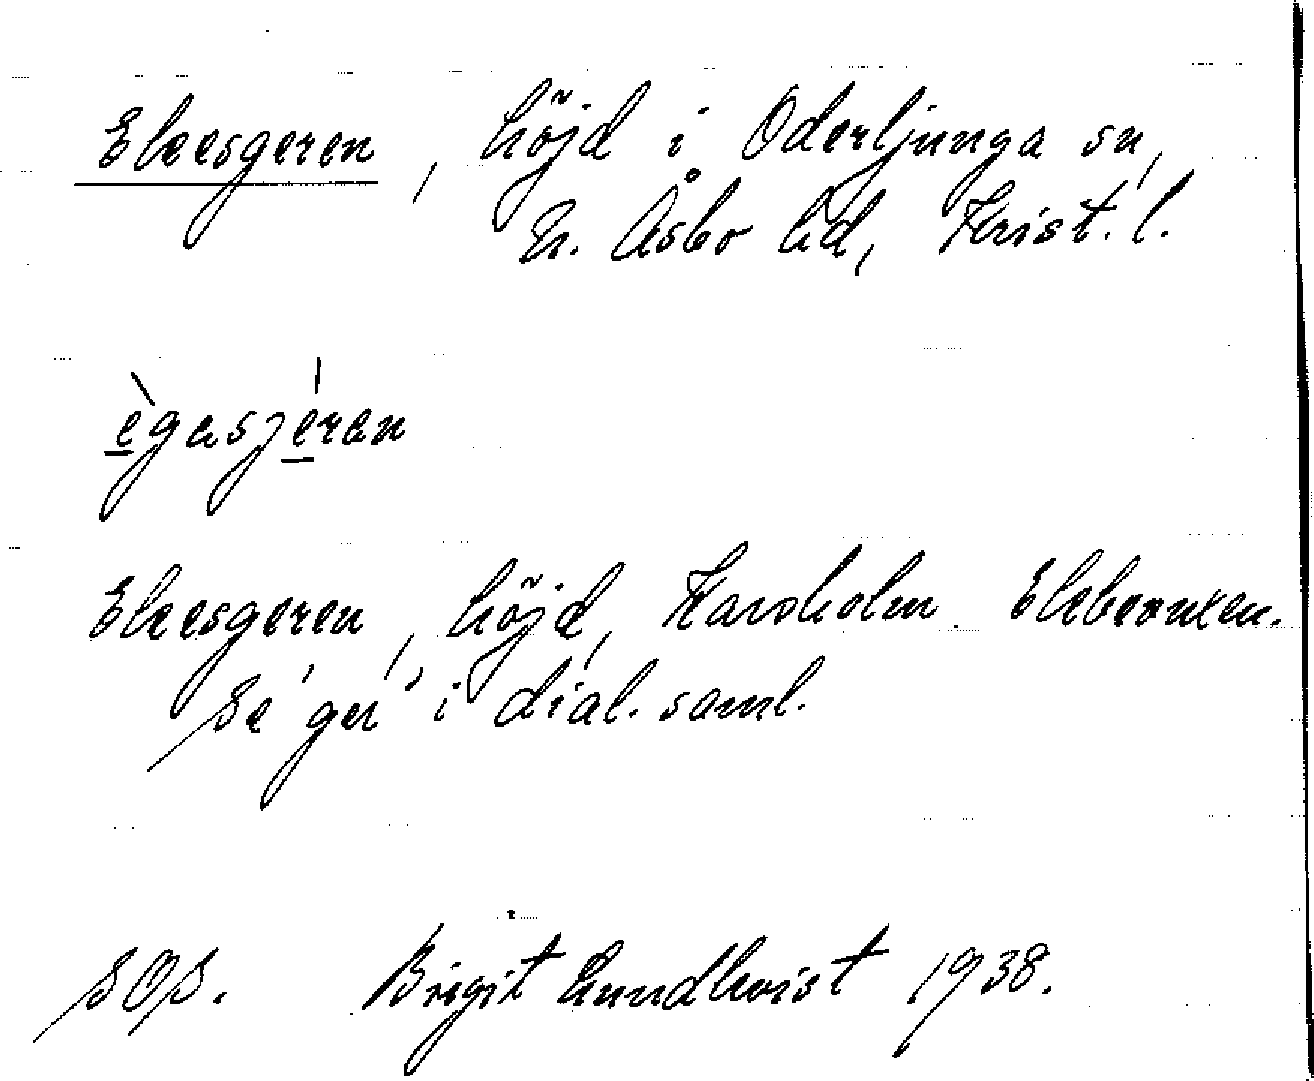 Ekesgeren, höjd i Oderljunga sn,
N. Åsbo hd, Krist. l.
ègasjéran
Ekesgeren, höjd, Karsholm. Ekbacken.
Se 'ger' i dial. saml.
SOS. Birgit Lundkvist 1938.